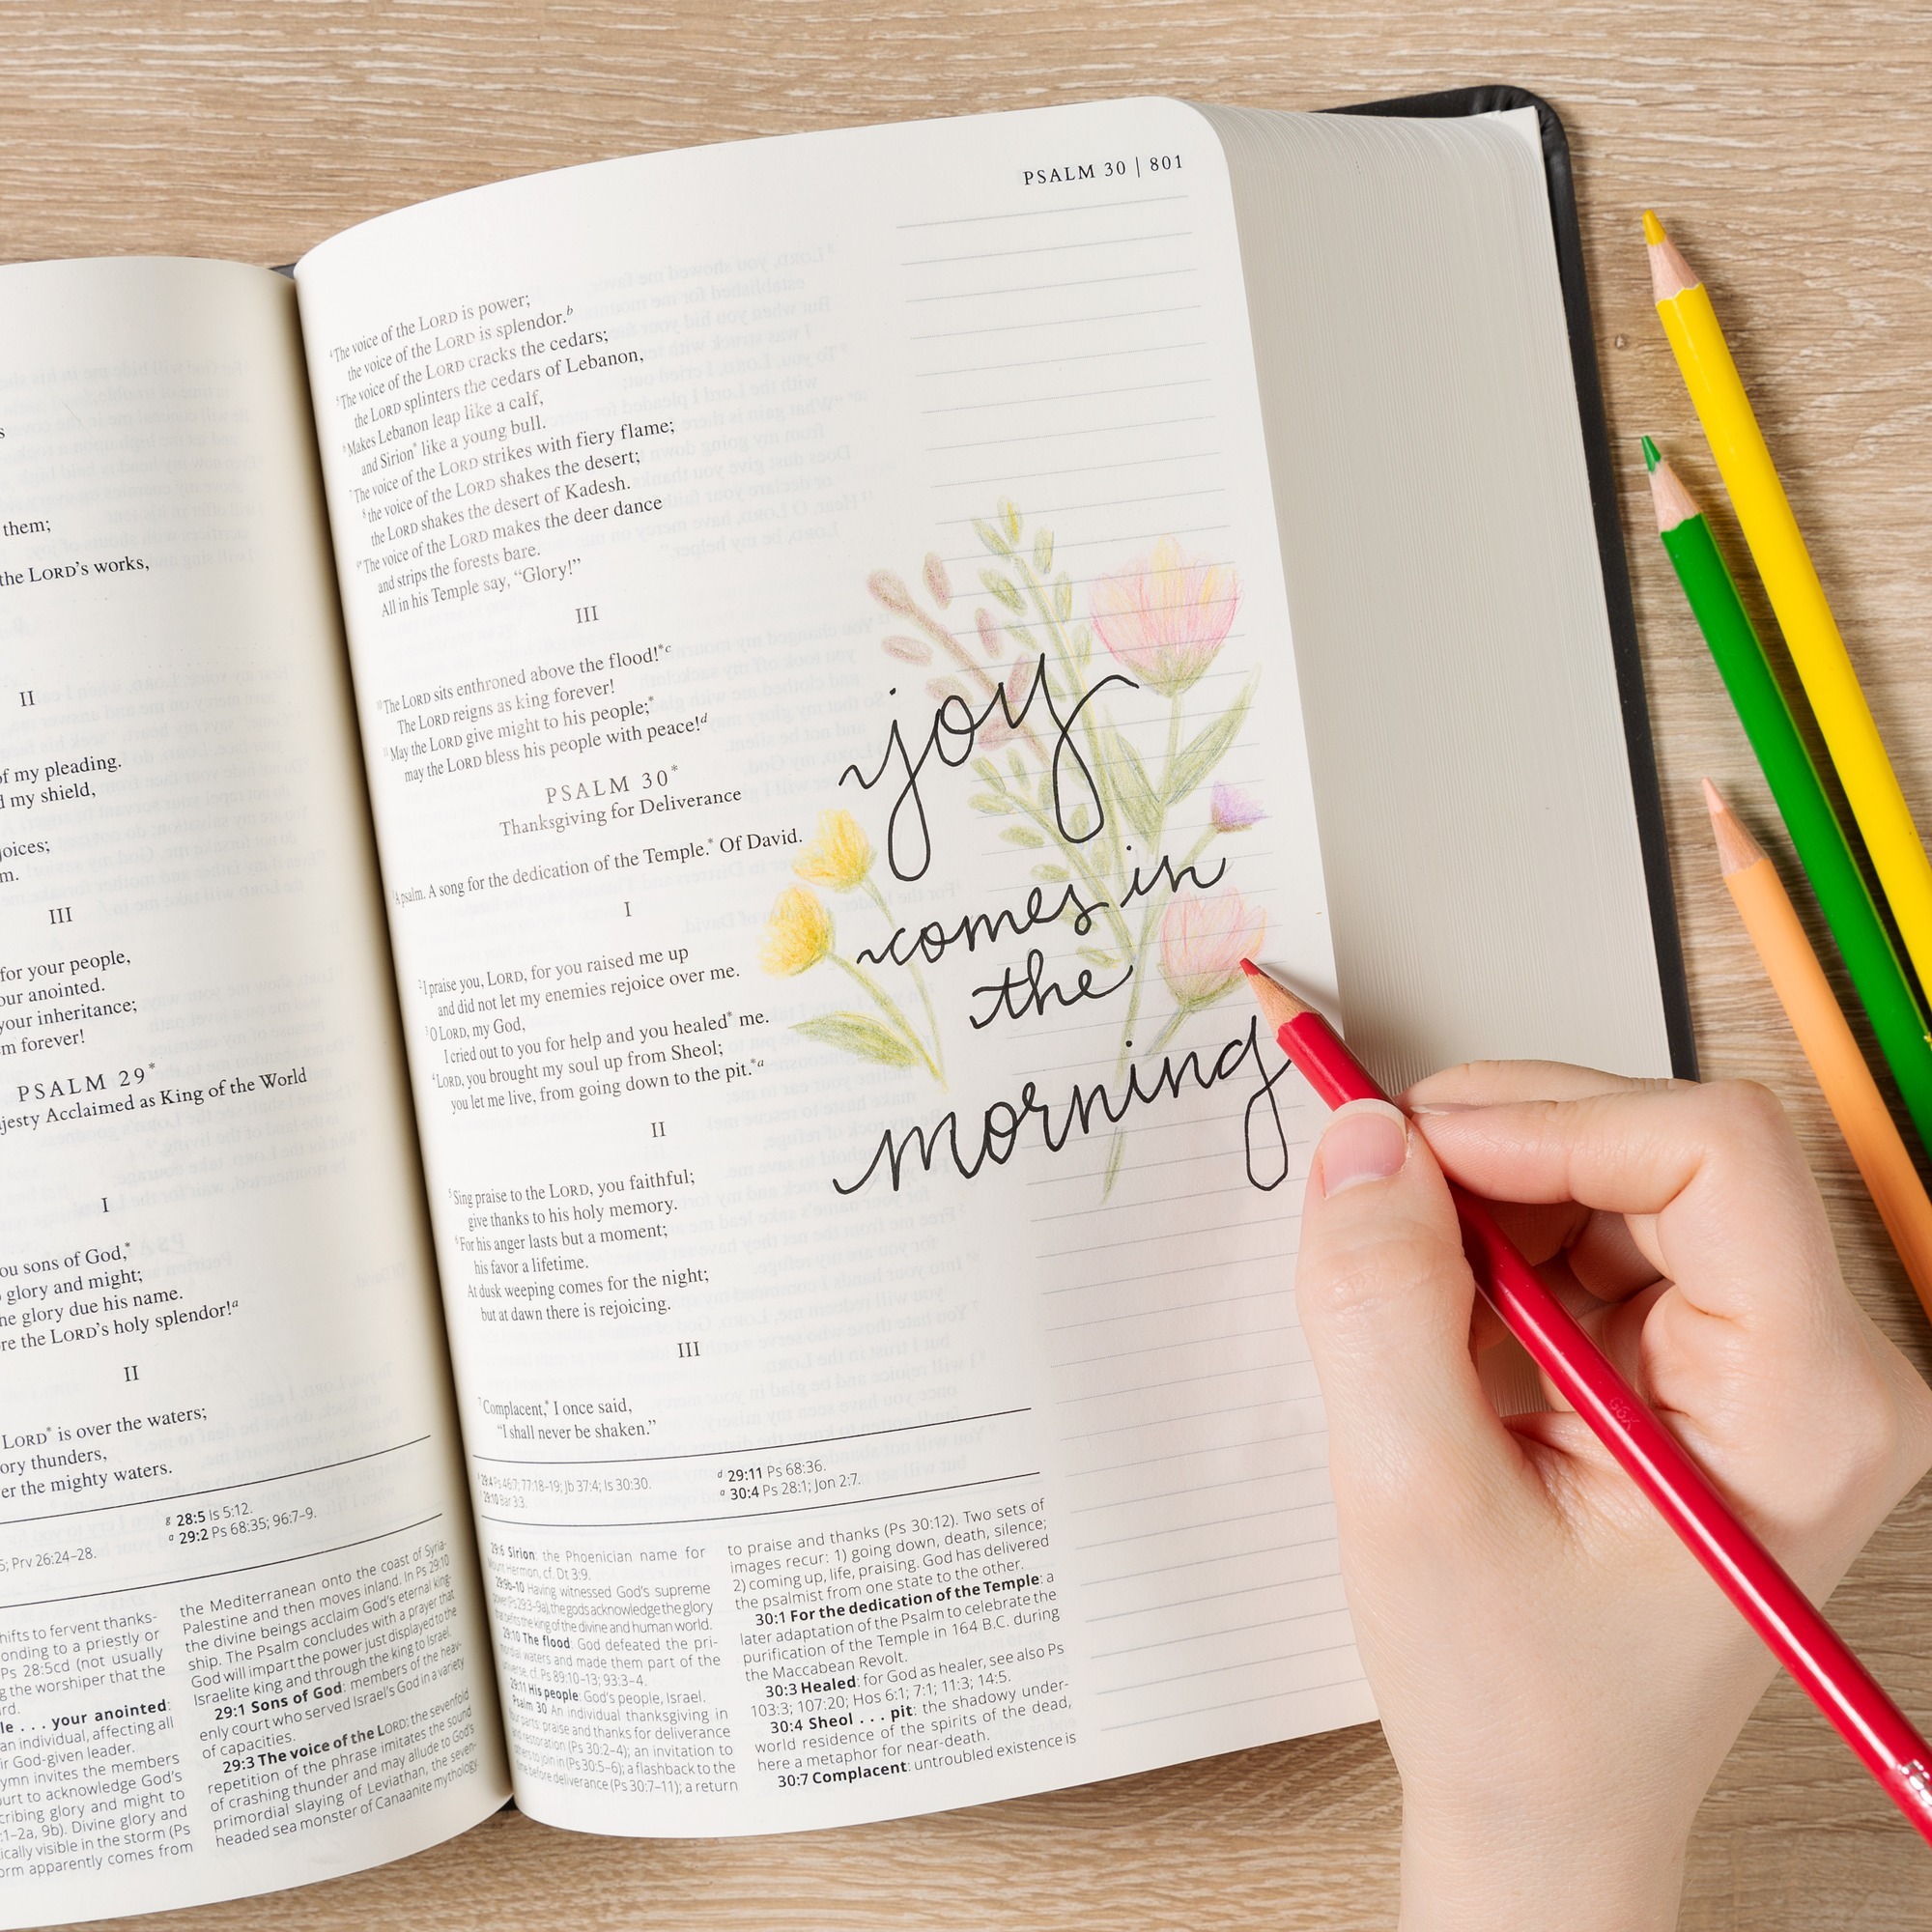 them;
the LORD's works,
II
of my pleading.
my shield,
III
for your people,
your anointed.
your inheritance;
forever!
PSALM 29*
Majesty Acclaimed as King of the World
I
you sons of God,*
glory and might;
the glory due his name.
the LORD's holy splendor!a
II
LORD* is over the waters;
thunders,
the mighty waters.
g 28:5 Is 5:12.
Prv 26:24–28.
a 29:2 Ps 68:35; 96:7–9.
shifts to fervent thanks-
to a priestly or
Ps 28:5cd (not usually
the worshiper that the
. . . your anointed:
an individual, affecting all
God-given leader.
invites the members
to acknowledge God's
glory and might to
9b). Divine glory and
visible in the storm (Ps
apparently comes from
the Mediterranean onto the coast of Syria-
Palestine and then moves inland. In Ps 29:10
the divine beings acclaim God's eternal king-
ship. The Psalm concludes with a prayer that
God will impart the power just displayed to the
Israelite king and through the king to Israel.
29:1 Sons of God: members of the heav-
enly court who served Israel's God in a variety
of capacities.
29:3 The voice of the LORD: the sevenfold
repetition of the phrase imitates the sound
of crashing thunder and may allude to God's
primordial slaying of Leviathan, the seven-
headed sea monster of Canaanite mythology.
PSALM 30 | 801
4The voice of the LORD is power;
the voice of the LORD is splendor.b
5The voice of the LORD cracks the cedars;
the LORD splinters the cedars of Lebanon,
6Makes Lebanon leap like a calf,
and Sirion* like a young bull.
7The voice of the LORD strikes with fiery flame;
8the voice of the LORD shakes the desert;
the LORD shakes the desert of Kadesh.
9The voice of the LORD makes the deer dance
and strips the forests bare.
All in his Temple say, “Glory!”
III
10The LORD sits enthroned above the flood!*c
The LORD reigns as king forever!
11May the LORD give might to his people;*
may the LORD bless his people with peace!d
PSALM 30*
Thanksgiving for Deliverance
1A psalm. A song for the dedication of the Temple.* Of David.
I
2I praise you, LORD, for you raised me up
and did not let my enemies rejoice over me.
3O LORD, my God,
I cried out to you for help and you healed* me.
4LORD, you brought my soul up from Sheol;
you let me live, from going down to the pit.*a
II
5Sing praise to the LORD, you faithful;
give thanks to his holy memory.
6For his anger lasts but a moment;
his favor a lifetime.
At dusk weeping comes for the night;
but at dawn there is rejoicing.
III
7Complacent,* I once said,
“I shall never be shaken.”
joy
comes in
the
morning
29:4 Ps 46:7; 77:18–19; Jb 37:4; Is 30:30.
29:10 Bar 3:3.
d 29:11 Ps 68:36.
a 30:4 Ps 28:1; Jon 2:7.
29:6 Sirion: the Phoenician name for
Mount Hermon, cf. Dt 3:9.
29:9b–10 Having witnessed God's supreme
power (Ps 29:3–9a), the gods acknowledge the glory
that befits the king of the divine and human world.
29:10 The flood: God defeated the pri-
mordial waters and made them part of the
universe, cf. Ps 89:10–13; 93:3–4.
29:11 His people: God's people, Israel.
Psalm 30 An individual thanksgiving in
four parts: praise and thanks for deliverance
and restoration (Ps 30:2–4); an invitation to
others to join in (Ps 30:5–6); a flashback to the
time before deliverance (Ps 30:7–11); a return
to praise and thanks (Ps 30:12). Two sets of
images recur: 1) going down, death, silence;
2) coming up, life, praising. God has delivered
the psalmist from one state to the other.
30:1 For the dedication of the Temple: a
later adaptation of the Psalm to celebrate the
purification of the Temple in 164 B.C. during
the Maccabean Revolt.
30:3 Healed: for God as healer, see also Ps
103:3; 107:20; Hos 6:1; 7:1; 11:3; 14:5.
30:4 Sheol . . . pit: the shadowy under-
world residence of the spirits of the dead,
here a metaphor for near-death.
30:7 Complacent: untroubled existence is